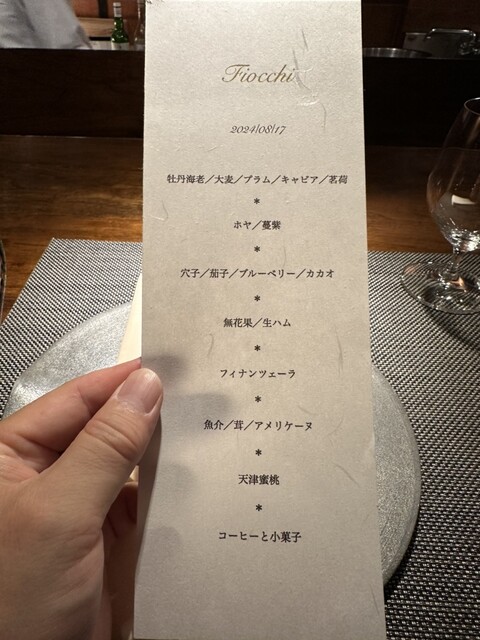 Fiocchi
2024/08/17
牡丹海老／大麦／プラム／キャビア／茗荷
*
ホヤ／蔓紫
*
穴子／茄子／ブルーベリー／カカオ
*
無花果／生ハム
*
フィナンツェーラ
*
魚介／茸／アメリケーヌ
*
天津蜜桃
*
コーヒーと小菓子